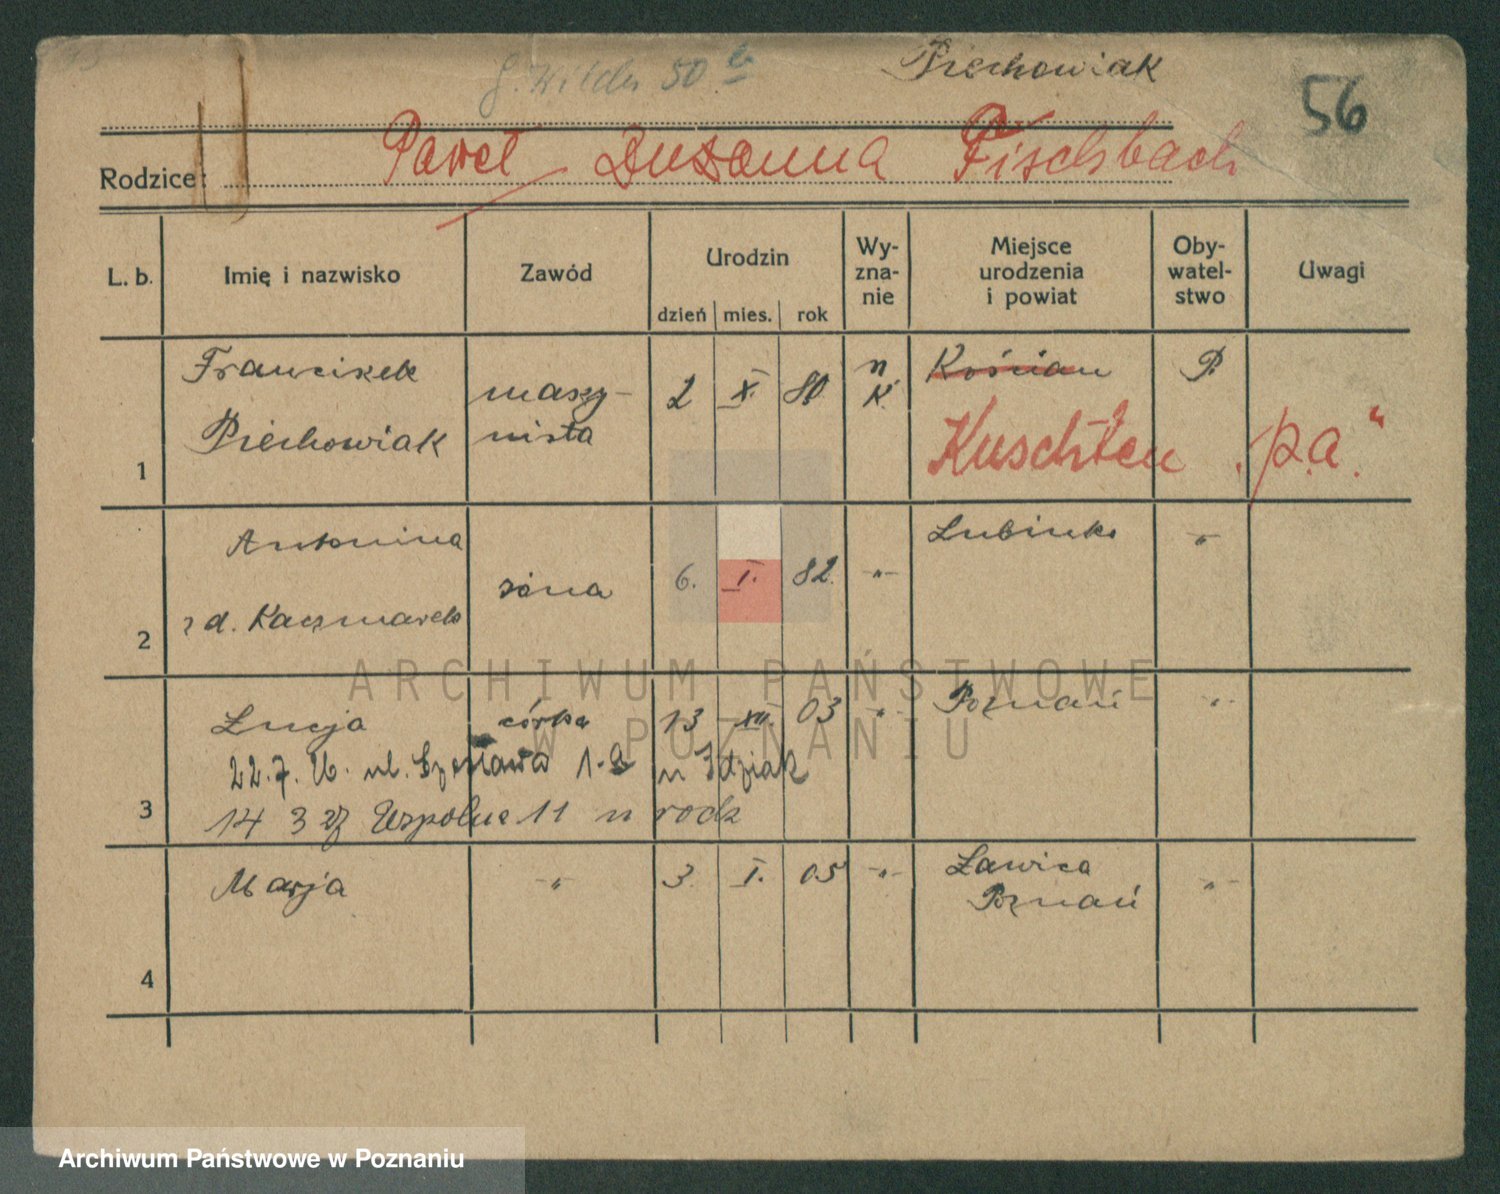 G. Wilda 50 b
Piechowiak
56
Rodzice: Paweł Zuzanna Fischbach
L. b. Imię i nazwisko Zawód Urodzin dzień mies. rok Wy-zna-nie Miejsce urodzenia i powiat Oby-watel-stwo Uwagi
Franciszek maszy- 2 X. 80 r. K. Kościan P.
1 Piechowiak nista Kuschten "p.a."
Antonina Lubinko "
żona 6. I. 82. "
2 z d. Kaczmarek
Łucja córka 13 XII. 03 " Poznań "
22.7. 26. ul. Czesława u Idziak
3 14 3 27 Wspólna 11 u rodz
4 Marja " 3. I. 05 " Ławica "
Poznań
ARCHIWUM PAŃSTWOWE
W POZNANIU
Archiwum Państwowe w Poznaniu